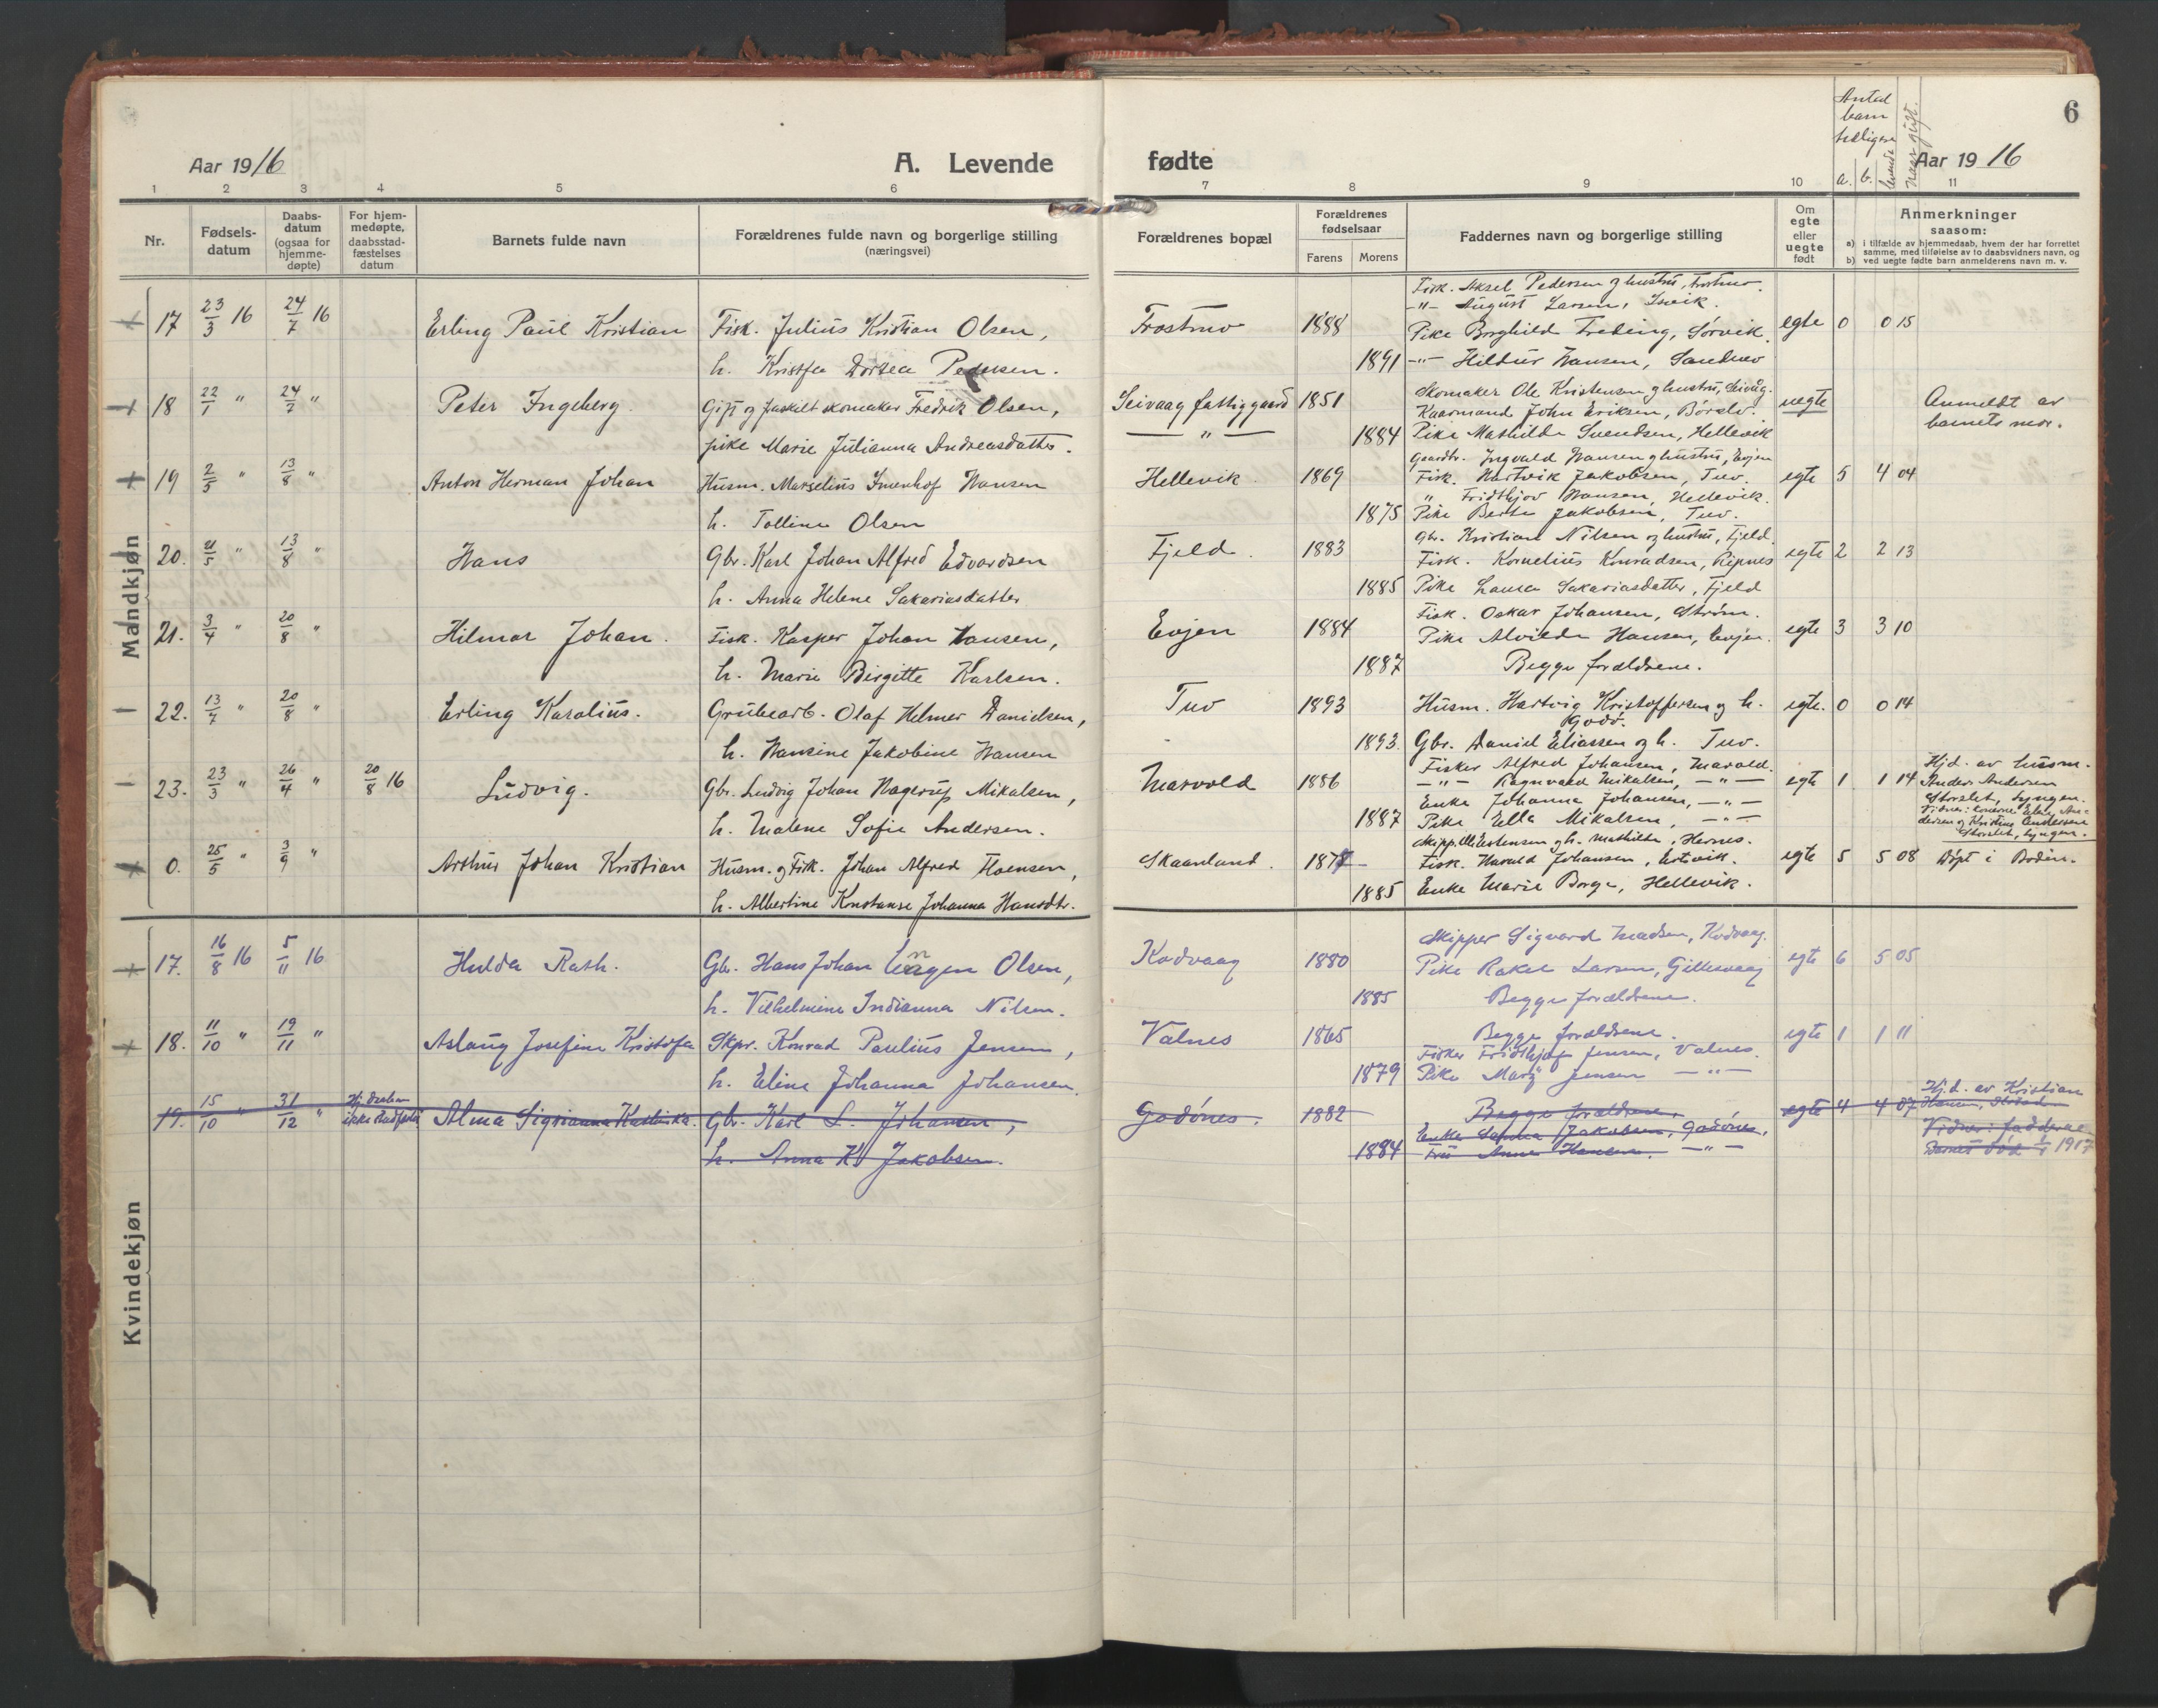 6
Aar 1916
A. Levende
fødte
Antal
barn
tidligere
a. b. levende
Naar gift.
Aar 1916
1 2 3 4 5 6 7 8 9 10 11
Nr.
Fødsels-
datum
Daabs-
datum
(ogsaa for
hjemme-
døpte)
For hjem-
medøpte,
daabsstad-
fæstelses
datum
Barnets fulde navn
Forældrenes fulde navn og borgerlige stilling
(næringsvei)
Forældrenes bopæl
Forældrenes
fødselsaar
Farens Morens
Faddernes navn og borgerlige stilling
Om
egte
eller
uegte
født
Anmerkninger
saasom:
a) i tilfælde av hjemmedaab, hvem der har forrettet
samme, med tilføielse av to daabsvidners navn, og
b) ved uegte fødte barn anmelderens navn m. v.
Mandkjøn
17 23/3 16 24/7 16 Erling Paul Kristian Fisk. Julius Kristian Olsen, Trostmo 1888 egte 0 0 15
h. Kristfea Dortea Pedersen. 1891
Fisk. Aksel Pedersen og hustru, Trostmo.
-"- August Larsen,
Pike Borghild Freding, Sørvik.
-"- Hildur Hansen, Sandmo
18 22/1 " 24/7 " Peter Ingeberg. Gift og fraskilt skomaker Fredrik Olsen, Seivaag fattiggaard 1851 uegte
pike Marie Julianna Andreasdatter. — " — 1884
Skomaker Ole Kristensen og hustru, Seivåg.
Kaarmand John Eriksen, Børelv.
Pike Mathilde Svendsen, Hellevik
Anmeldt av
barnets mor.
19 2/5 " 13/8 " Anton Herman Johan Husm. Marselius Imenhof Hansen Hellevik. 1869 egte 5 4 04
h. Tolline Olsen 1875
Gaardbr. Ingvald Hansen og hustru, Evjen
Fisk. Hartvik Jakobsen, Tuv.
" Fridthjov Hansen, Hellevik.
Pike Berte Jakobsen, Tuv.
20. 21/5 " 13/8 " Hans Gbr. Karl Johan Alfred Edvardsen Fjeld. 1883 egte 2 2 13
h. Anna Helene Sakariasdatter 1885
Gbr. Kristian Nilsen og hustru, Fjeld.
Fisk. Kornelius Konradsen, Ripnes
Pike Laura Sakariasdatter, Fjeld
21. 3/4 " 20/8 " Hilmar Johan. Fisk. Kasper Johan Hansen, Evjen 1884 egte 3 3 10
h. Marie Birgitte Karlsen. 1887
Fisk. Oskar Johansen, Strøm.
Pike Alvilde Hansen, Evjen.
Begge forældrene.
22. 13/7 " 20/8 " Erling Karolius. Grubearb. Olaf Helmer Danielsen, Tuv 1893 egte. 0 0 14
h. Hansine Jakobine Hansen 1893.
Husm. Hartvig Kristoffersen og h.
Godø.
Gbr. Daniel Eliassen og h. Tuv.
23. 23/3 " 26/4 " 20/8 16 Ludvig. Gbr. Ludvig Johan Hagerup Mikalsen, Marvold 1886 egte 1 1 14
h. Malene Sofie Andersen. 1887
Fisker Alfred Johansen, Marvold.
-"- Ragnvald Mikalsen, -"-
Enke Johanna Johansen, -"-
Pike Ella Mikalsen, -"-
Hjd. av husm.
Anders Andersen
Storslet, Lyngen.
Vidner: konerne Elen An-
dersen og Kristine Andersen
Storslet, Lyngen.
0. 25/5 " 3/9 " Arthur Johan Kristian Husm. og Fisk. Johan Alfred Floensen, Skaanland. 1877 egte 5 5 08 Døpt i Bodin.
h. Albertine Konstanse Johanna Hansdtr. 1885
Fisk. Harald Johansen,
Enke Marie Borge, Hellevik.
Kvindekjøn
17. 16/8 16 5/11 16 Hulda Ruth. Gbr. Hans Johan Olsen, Kodvaag 1880 egte 6 5 05
h. Vilhelmine Indianna Nilsen. 1885
Skipper Sigvard Madsen, Kodvaag.
Pike Rakel Larsen, Gillesvaag
Begge forældrene.
18. 11/10 " 19/11 " Aslaug Josefine Kristofa Skpr. Konrad Paulius Jensen, Valnes 1865 egte 1 1 11
h. Eline Johanna Johansen. 1879
Begge forældrene.
Fisker Fridthjof Jensen, Valnes.
Pike Mary Jensen -"-
19. 15/10 " 31/12 " Hjdaaben
ikke stadfestet Alma Sigrianna Gbr. Karl L. Johansen, Godønes. 1882 egte 4 4 07
h. Anna K. Jakobsen. 1884
Begge forældrene,
Enke Jakobsen, Godønes,
Fru Anna Hansen. -"-
Hjd. av Kristian
Hansen,
Vidner: fadderne
Barnet død 1/1 1917